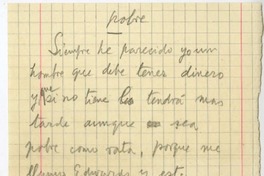 pobre
Siempre he parecido yo un
hombre que debe tener dinero
y que si no tiene lo tendrá mas
tarde aunque sea
pobre como rata, porque me
llamo Edwards y est